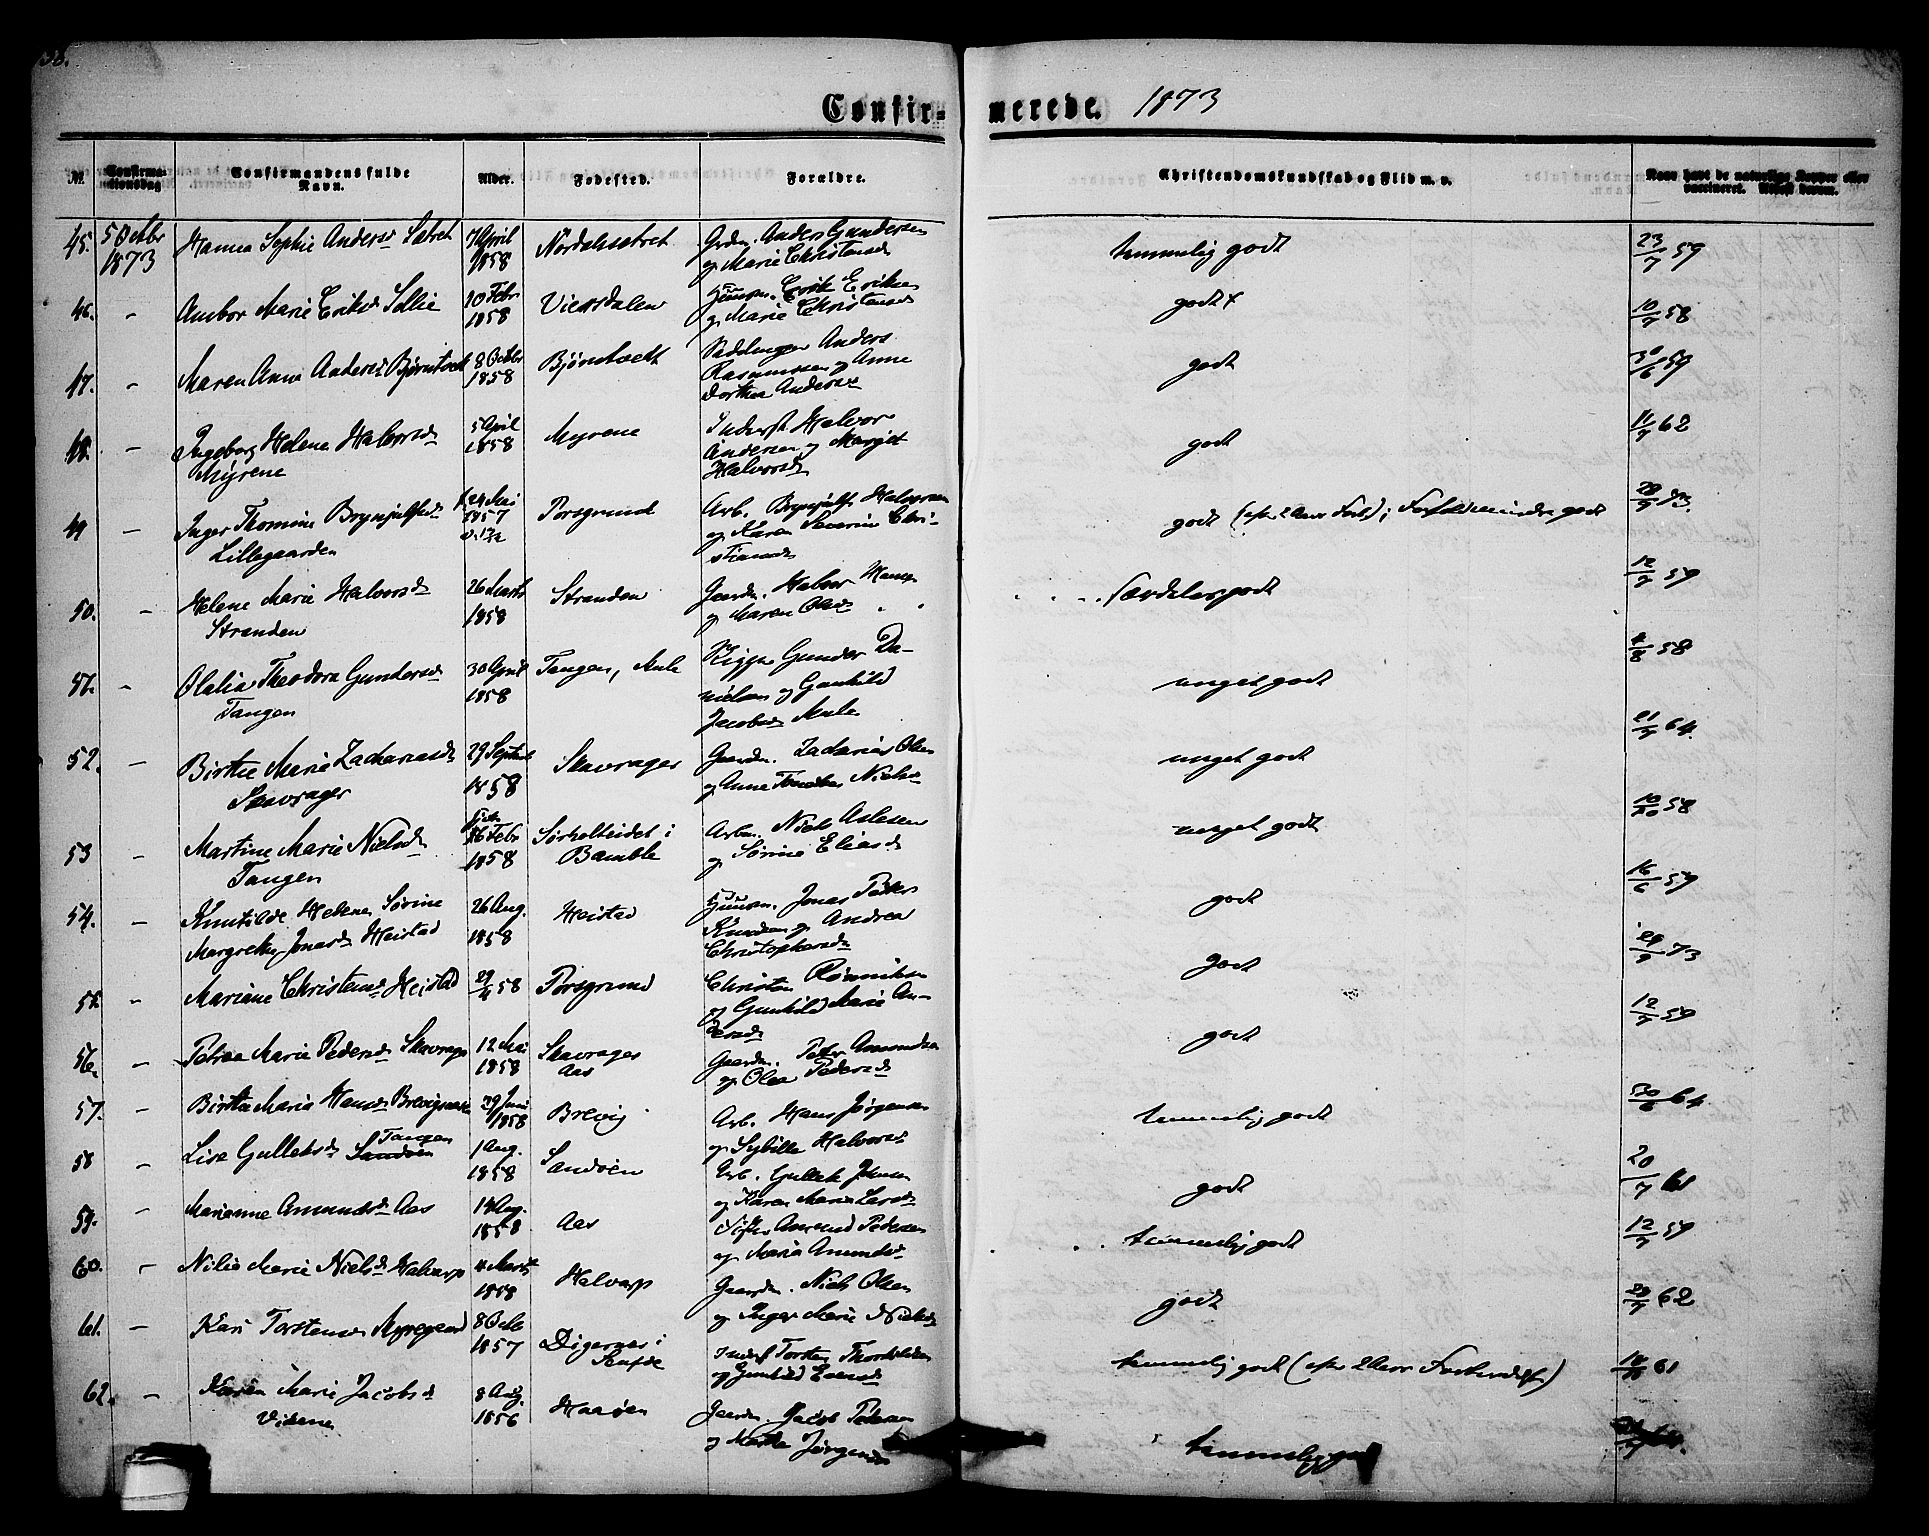 Confirmerede. 1873
№ Confirmationsdag Confirmandens fulde Navn. Alder. Fødested. Forældre. Christendomskundskab og Flid m. v. Naar havt de naturlige Kopper eller vaccineret. Attest derom.
45. 5 Octbr 1873 Hanna Sophie Andersd Sætret 7 April 1858 Nordalsætret Grdm. Anders Gundersen
og Marie Christensd temmelig godt 23/7 59
46. - Anbor Marie Eriksd Sollie 20 Febr 1858 Viersdalen Huusm. Erik Eriksen
og Marie Christensd godt + 10/7 58
47. - Maren Anna Andersd Bjørntvedt 8 Octbr 1858 Bjørntvedt Anders
Rasmussen og Anne
Dorthea Andersd godt 30/6 59
48. - Ingeborg Helene Halvorsd
Myrene 5 April 1858 Myrene Inderst Halvor
Andersen og Margit
Halvorsd godt 11/7 62
49 - Inger Thomine Brynjulfsd
Lillegaarden 24 Mai 1857 Porsgrund Arb. Brynjulf Halvorsen
og Karen Severine Chri-
stiansd godt 28/9 73.
50. - Helene Marie Halvorsd
Stranden 26 Marts 1858 Stranden Gaardm. Halvor Hansen
og Maren Olsd særdeles godt 12/7 59
51. - Olalia Theodora Gundersd
Tangen 30 April 1858 Tangen, Mule Gunder Da-
nielsen og Gunhild
Jacobsd Mule meget godt 4/8 58
52. - Birthe Marie Zachariasd
Skavrager 29 Septbr 1858 Skavrager Gaardm. Zacharias Olsen
og Anne Nielsd meget godt 21/7 64.
53 - Martine Marie Nielsd
Tangen 16 Febr 1858 Sørholteidet i
Bamble Arbm. Niels Aslesen
og Sørine Eliasd meget godt 10/10 58
54. - Knutilde Helene Sørine
Margrethe Jonasd Heistad 26 Aug. 1858 Heistad Huusm. Jonas Peder
Knudsen og Andrea
Christophersd godt 16/6 59
55. - Mariane Christensd Heistad 29/4 58 Porsgrund Christen
og Gunhild Marie An-
dersd godt 29/9 73
56. - Petrea Marie Pedersd Skavrager 12 Mai 1858 Skavrager
Aas Gaardm. Peder Amundsen
og Olea Pedersd godt 12/7 59
57. - Birthe Maria Hansd 29 Juni 1858 Brevig Arb. Hans Jørgensen
og Sybille Halvorsd temmelig godt 30/6 64
58 - Lise Gulleksd Tangen
Sandøen 1 Aug. 1858 Sandøen Arb. Gullek Johnsen
og Karen Maria Larsd godt 20/7 61
59. - Marianne Amundsd Aas Aug. 1858 Aas Amund Pedersen
og Maria Amundsd temmelig godt 12/7 59
60. - Nilia Marie Nielsd Halvarp 4 Marts 1858 Halvarp Gaardm. Niels Olsen
og Inger Marie Nielsd godt 29/7 62
61. - Kari Torstensd Myregaard 8 Octb 1857 Digernes i Inderst Torsten
og Gunhild temmelig godt 61
62. - Karen Marie Jacobsd
Videne 8 Aug 1856 Haaøen Gaardm. Jacob Pedersen
og Marthe Jørgensd temmelig godt